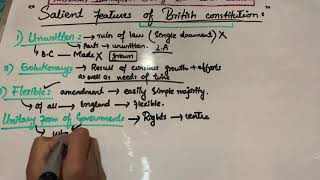 "Salient features of British constitution:"
1) Unwritten: → rules of law (single document) X
→ Parts → unwritten. 2.A
→ B.C → Made X grown
2) Evolutionary: → Result of continuous growth + efforts
as well as needs of time
3) Flexible: → amendment → easily simple majority.
→ of all → England → flexible.
Unitary Form of Government: → Rights → centre